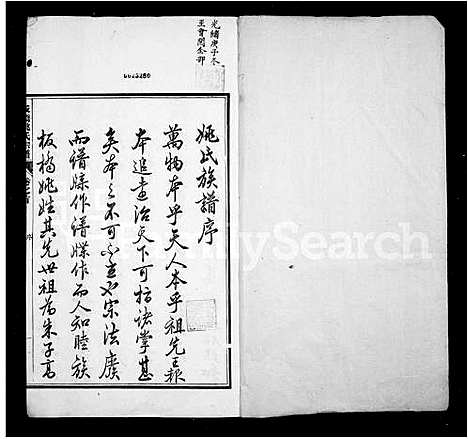 光緒庚子冬
0623280
姚氏族譜序
萬物本乎天人本乎祖先王報
本追遠治天下可指諸掌甚
矣本之不可不立也宗法廢
而譜牒作譜牒作而人知睦族
板橋姚姓其先世祖為朱子高
FamilySearch